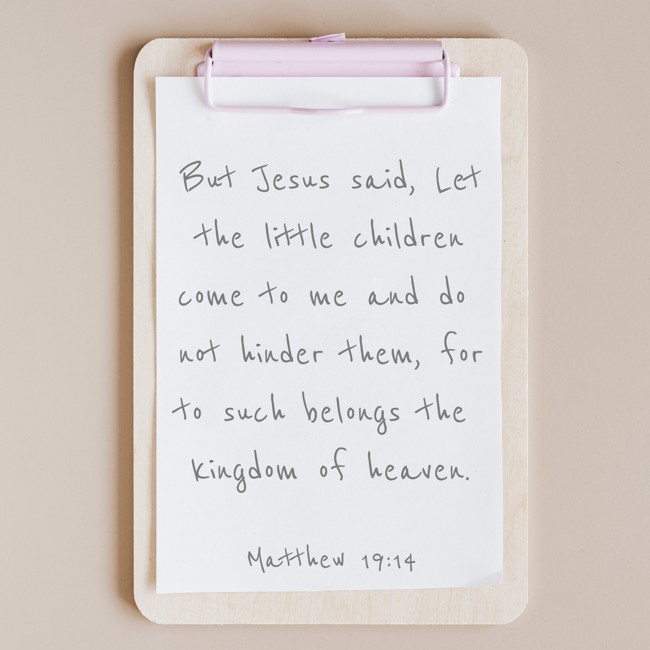 But Jesus said, Let
the little children
come to me and do
not hinder them, for
to such belongs the
kingdom of heaven.
Matthew 19:14